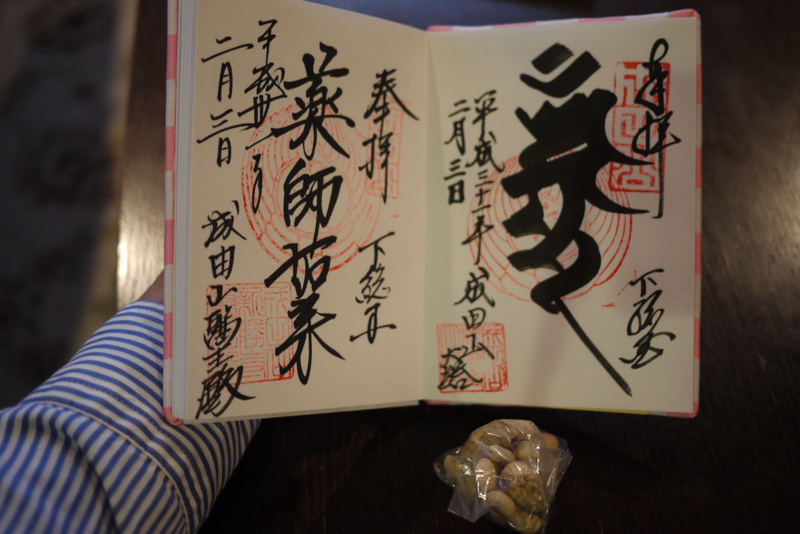 奉拝
下総
平成三十一年 成田山
二月三日
大塔
奉拝
下総
薬師如来
平成卅一年
二月三日
成田山醫王殿